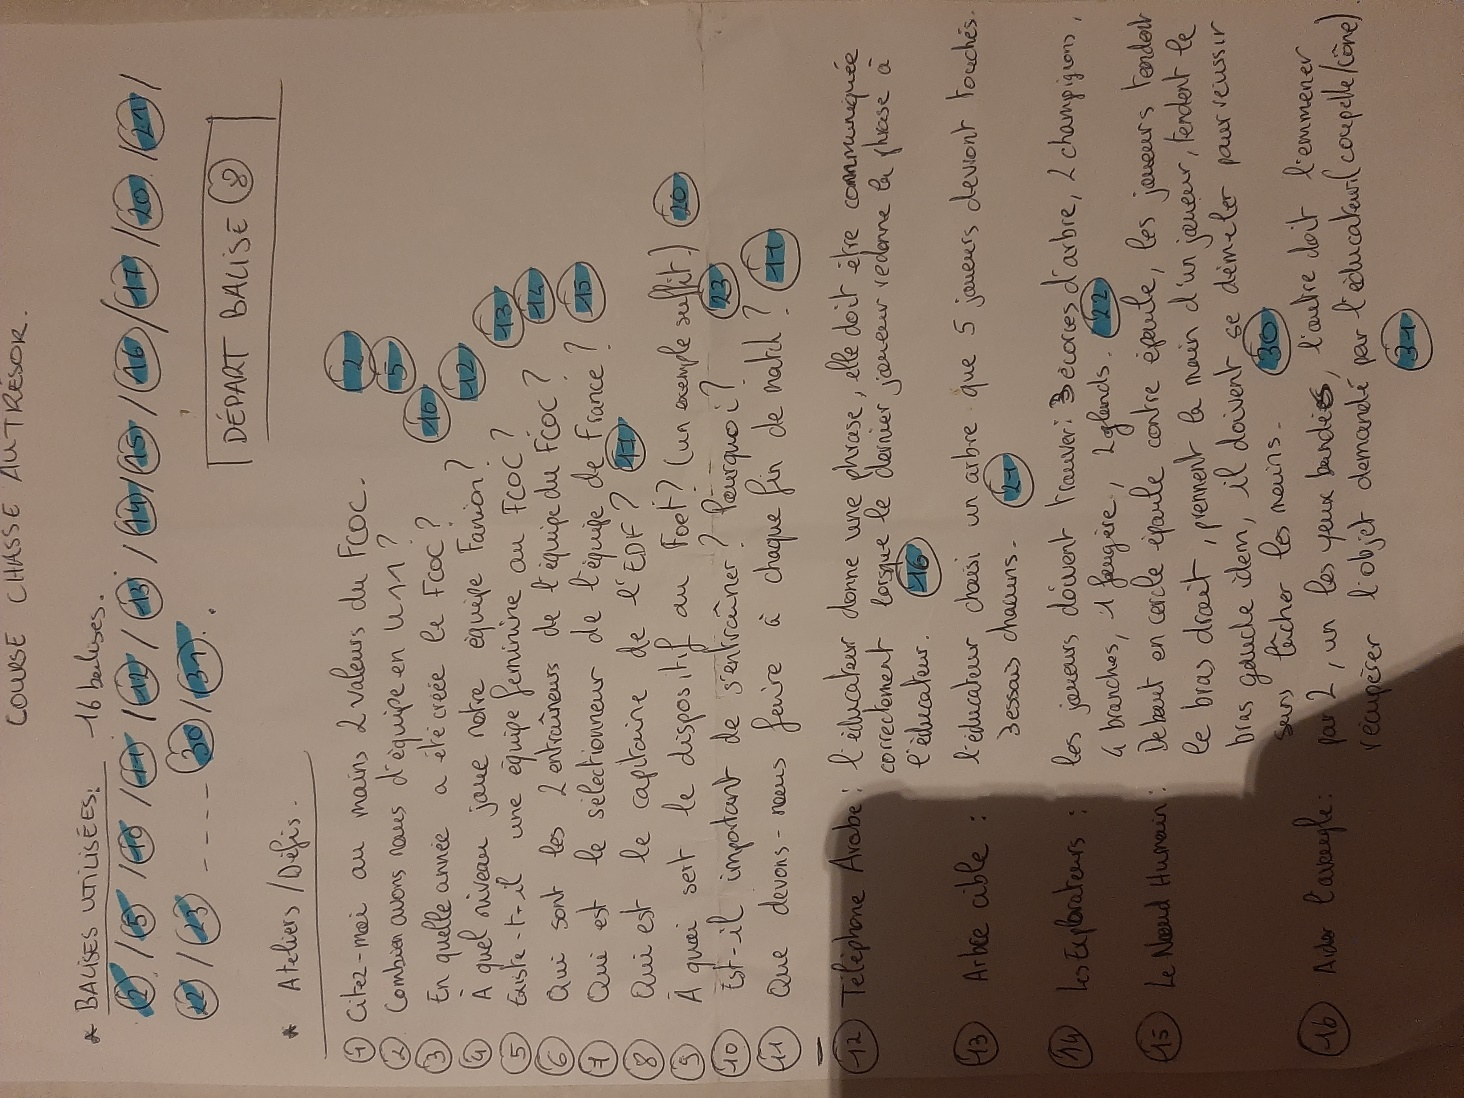 COURSE CHASSE AU TRÉSOR.
* BALISES UTILISÉES. 16 balises.
2 / 5 / 10 / 11 / 12 / 13 / 14 / 15 / 16 / 17 / 20 / 21 /
22 / 23 ---- 30 / 31.
DÉPART BALISE 8
* Ateliers / Défis.
1 Citez-moi au moins 2 valeurs du FCOC. 2
2 Combien avons nous d'équipe en U11 ? 5
3 En quelle année a été créée le FCOC ? 10
4 À quel niveau joue notre équipe Fanion ? 12
5 Existe-t-il une équipe féminine au FCOC ? 13
6 Qui sont les 2 entraîneurs de l'équipe du FCOC ? 14
7 Qui est le sélectionneur de l'équipe de France ? 15
8 Qui est le capitaine de l'EDF ?
9 À quoi sert le dispositif au Foot ? (un exemple suffit) 20
10 Est-il important de s'entraîner ? Pourquoi ? 23
11 Que devons-nous faire à chaque fin de match ?
12 Téléphone Arabe : l'éducateur donne une phrase, elle doit être communiquée
correctement lorsque le dernier joueur redonne la phrase à
l'éducateur. 16
13 Arbre cible : l'éducateur choisi un arbre que 5 joueurs devront touchés.
3 essais chacuns.
14 Les Explorateurs : les joueurs doivent trouver : 3 écorces d'arbre, 2 champignons,
4 branches, 1 fougère, 2 glands. 22
15 Le Nœud Humain : Debout en cercle épaule contre épaule, les joueurs tendent
le bras droit, prennent la main d'un joueur, tendent le
bras gauche idem, il doivent se démêler pour réussir
sans lâcher les mains. 30
16 Aider l'aveugle : par 2, un les yeux bandés, l'autre doit l'emmener
récupérer l'objet demandé par l'éducateur (coupelle/cône). 31